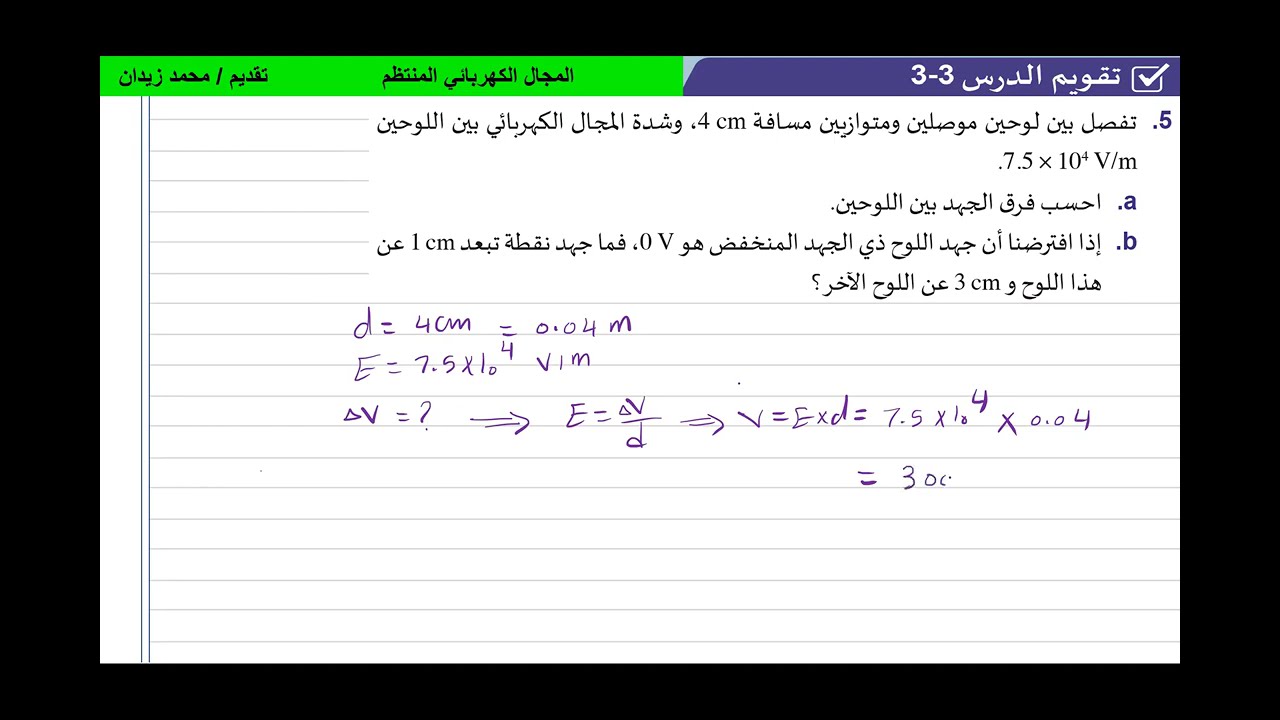 تقويم الدرس 3-3
المجال الكهربائي المنتظم
تقديم / محمد زيدان
5. تفصل بين لوحين موصلين ومتوازيين مسافة 4 cm، وشدة المجال الكهربائي بين اللوحين
7.5 × 10⁴ V/m.
a. احسب فرق الجهد بين اللوحين.
b. إذا افترضنا أن جهد اللوح ذي الجهد المنخفض هو 0 V، فما جهد نقطة تبعد 1 cm عن
هذا اللوح و 3 cm عن اللوح الآخر؟
d = 4cm = 0.04 m
E = 7.5 x 10⁴ V/m
ΔV = ? ⟹ E = ΔV/d ⟹ V = E x d = 7.5 x 10⁴ x 0.04
= 300